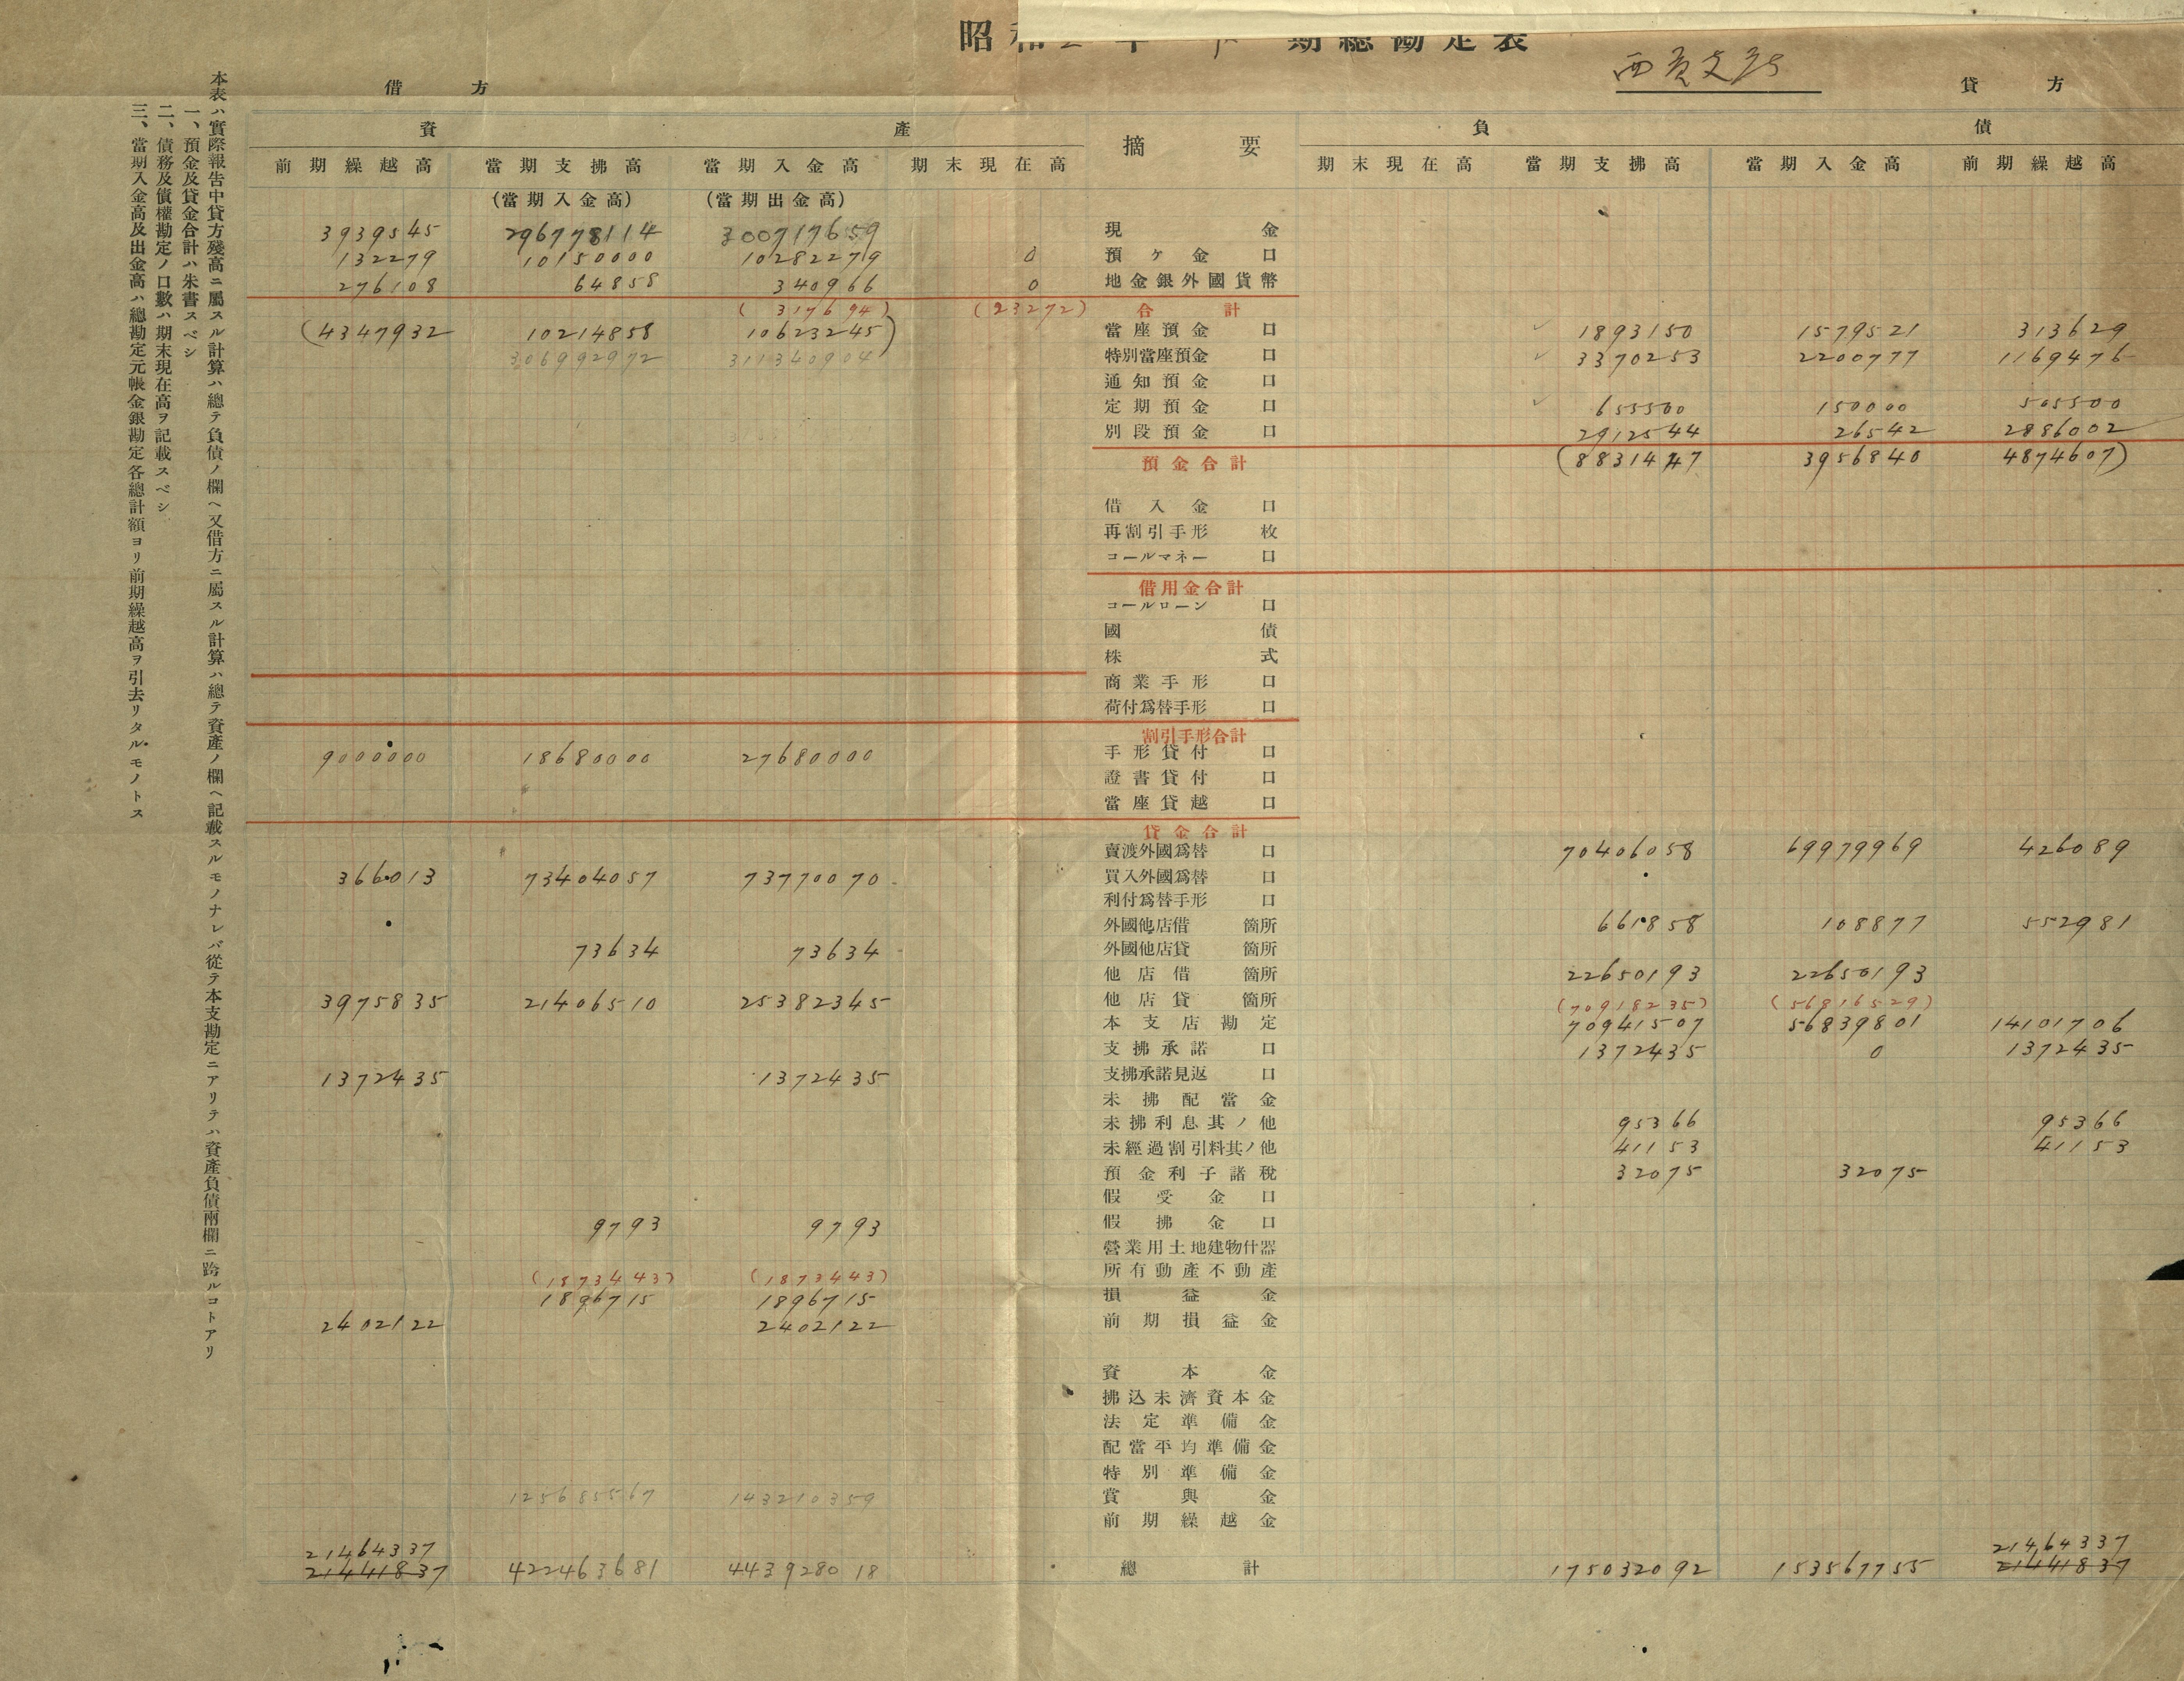 昭和2年 期總勘定表
西貢支店
借方
貸方
資產
摘要
負債
前期繰越高 當期支拂高 當期入金高 期末現在高 期末現在高 當期支拂高 當期入金高 前期繰越高
(當期入金高) (當期出金高)
3939545 296778114 300717659 現金
132279 10150000 10282279 0 預ケ金口
276108 64858 340966 0 地金銀外國貨幣
(317694) (23272) 合計
(4347932 10214858 10623245) 當座預金口 1893150 1579521 313629
306992972 311340904 特別當座預金口 3370253 2200777 1169476
通知預金口
定期預金口 655500 150000 505500
別段預金口 2912544 26542 2886002
預金合計 (8831447 3956840 4874607)
借入金口
再割引手形枚
コールマネー口
借用金合計
コールローン口
國債
株式
商業手形口
荷付爲替手形口
割引手形合計
9000000 18680000 27680000 手形貸付口
證書貸付口
當座貸越口
貸金合計
賣渡外國爲替口 70406058 69979969 426089
366013 73404057 73770070 買入外國爲替口
利付爲替手形口
外國他店借箇所 661858 108877 552981
73634 73634 外國他店貸箇所
他店借箇所 22650193 22650193
3975835 21406510 25382345 他店貸箇所
(70918235) (56816529)
本支店勘定 70941507 56839801 14101706
支拂承諾口 1372435 0 1372435
1372435 1372435 支拂承諾見返口
未拂配當金
未拂利息其ノ他 95366 95366
未經過割引料其ノ他 41153 41153
預金利子諸稅 32075 32075
假受金口
9793 9793 假拂金口
營業用土地建物什器
所有動產不動產
(1873443) (1873443)
1896715 1896715 損益金
2402122 2402122 前期損益金
資本金
拂込未濟資本金
法定準備金
配當平均準備金
特別準備金
125685567 143210359 賞與金
前期繰越金
21464337 21464337
21441837 422463681 443928018 總計 175032092 153567755 21441837
本表ハ實際報告中貸方殘高ニ屬スル計算ハ總テ負債ノ欄ヘ又借方ニ屬スル計算ハ總テ資產ノ欄ヘ記載スルモノナレバ從テ本支勘定ニアリテハ資產負債兩欄ニ跨ルコトアリ
一、預金及貸金合計ハ朱書スベシ
二、債務及債權勘定ノ口數ハ期末現在高ヲ記載スベシ
三、當期入金高及出金高ハ總勘定元帳金銀勘定各總計額ヨリ前期繰越高ヲ引去リタルモノトス